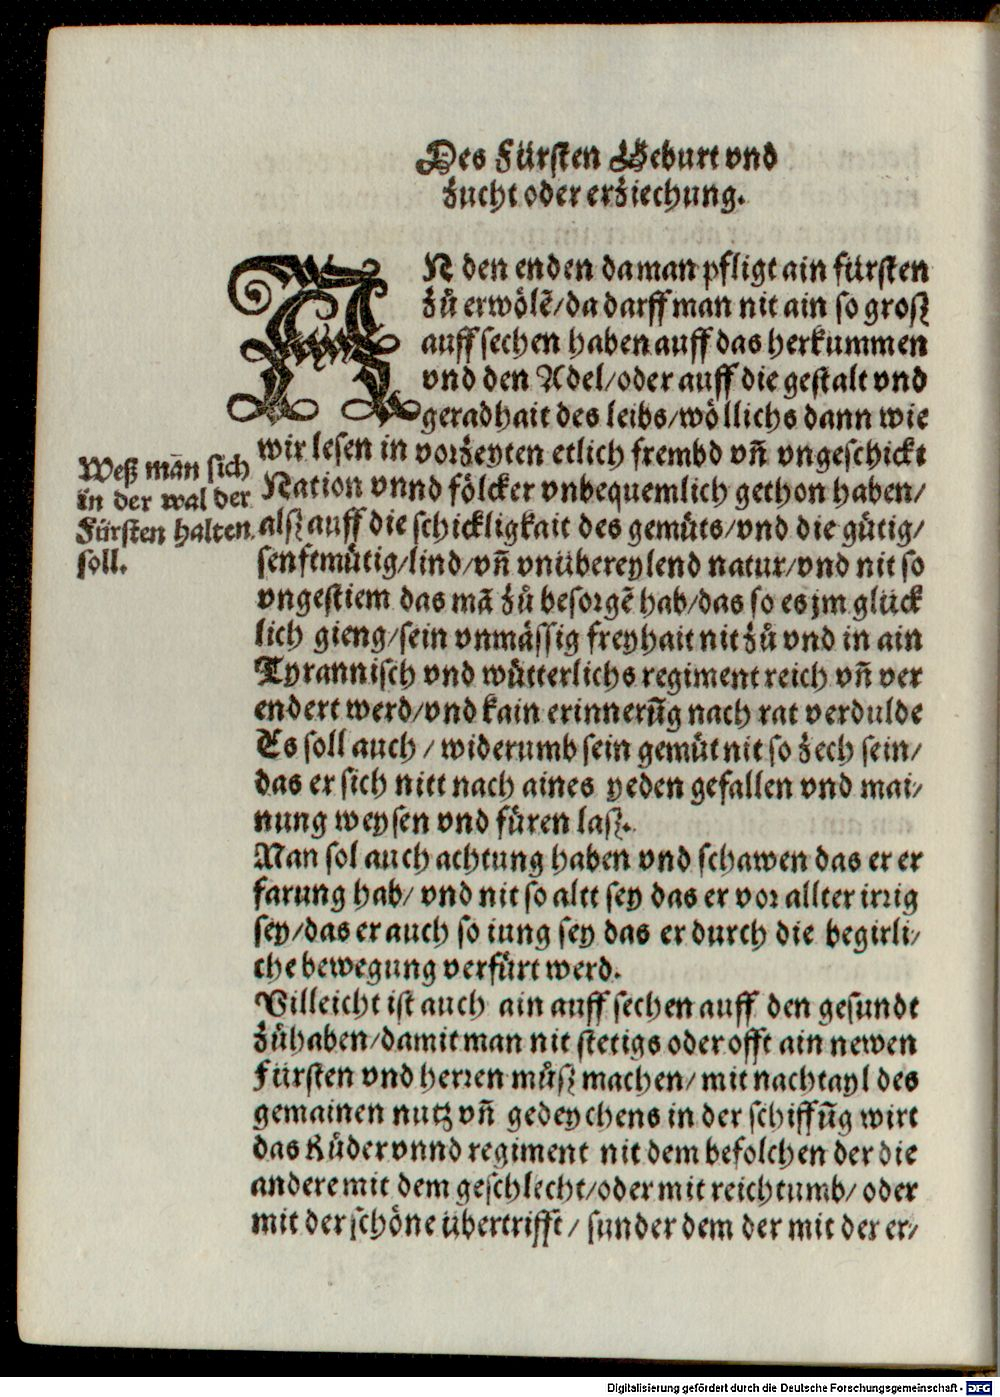 Des Fürsten Geburt vnd
zucht oder erziechung.
AN den enden da man pfligt ain fürsten
zů erwölẽ/da darff man nit ain so groß
auff sechen haben auff das herkummen
vnd den Adel/oder auff die gestalt vnd
geradhait des leibs/wöllichs dann wie
wir lesen in vorzeyten etlich frembd vñ vngeschickt
Nation vnnd fölcker vnbequemlich gethon haben/
alß auff die schickligkait des gemůts/vnd die gůtig/
senftmůtig/lind/vñ vnübereylend natur/vnd nit so
vngestiem das mã zů besorgẽ hab/das so es jm glück
lich gieng/sein vnmässig freyhait nit zů vnd in ain
Tyrannisch vnd wůtterlichs regiment reich vñ ver
endert werd/vnd kain erinnerũg nach rat verdulde
Es soll auch / widerumb sein gemůt nit so zech sein/
das er sich nitt nach aines yeden gefallen vnd mai/
nung weysen vnd fůren laß.
Man sol auch achtung haben vnd schawen das er er
farung hab/ vnd nit so altt sey das er vor allter irrig
sey/das er auch so iung sey das er durch die begirli/
che bewegung verfůrt werd.
Villeicht ist auch ain auff sechen auff den gesundt
zůhaben/damit man nit stetigs oder offt ain newen
Fürsten vnd herren můß machen/ mit nachtayl des
gemainen nutz vñ gedeychens in der schiffũg wirt
das Růder vnnd regiment nit dem befolchen der die
andere mit dem geschlecht/oder mit reichtumb/ oder
mit der schöne übertrifft / sunder dem der mit der er/
Weß man sich
in der wal der
Fürsten halten
soll.
Digitalisierung gefördert durch die Deutsche Forschungsgemeinschaft - DFG